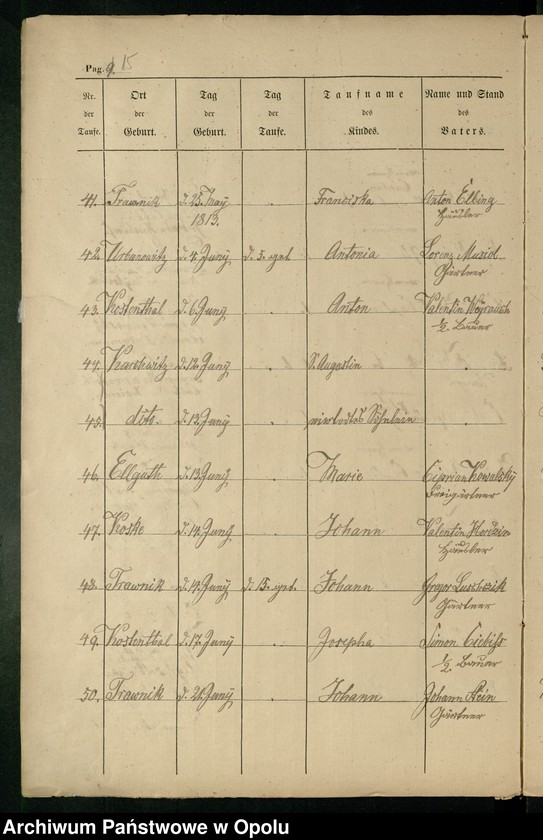 Pag. 9. 15
Nr. der Taufe. Ort der Geburt. Tag der Geburt. Tag der Taufe. Taufname des Kindes. Name und Stand des Vaters.
41. Trawnik d. 25. May Franciska Anton Elbing
1813. Häusler
42. Urbanowitz d. 4. Juny d. 5. get. Antonia Lorenz
Gärtner
43. Kostenthal d. 6. Juny Anton Valentin
½ Bauer
44. d. 12. Juny S. Augustin
45. dito. d. 12. Juny
46. Ellguth d. 13. Juny Marie Ciprian Kowalsky
Freigärtner
47. Koske d. 14. Juny Johann Valentin
Häusler
48. Trawnik d. 14. Juny d. 15. get. Johann Gregor
Gärtner
49. Kostenthal d. 17. Juny Josepha Simon
½ Bauer
50. Trawnik d. 21. Juny Johann Johann
Gärtner
Archiwum Państwowe w Opolu